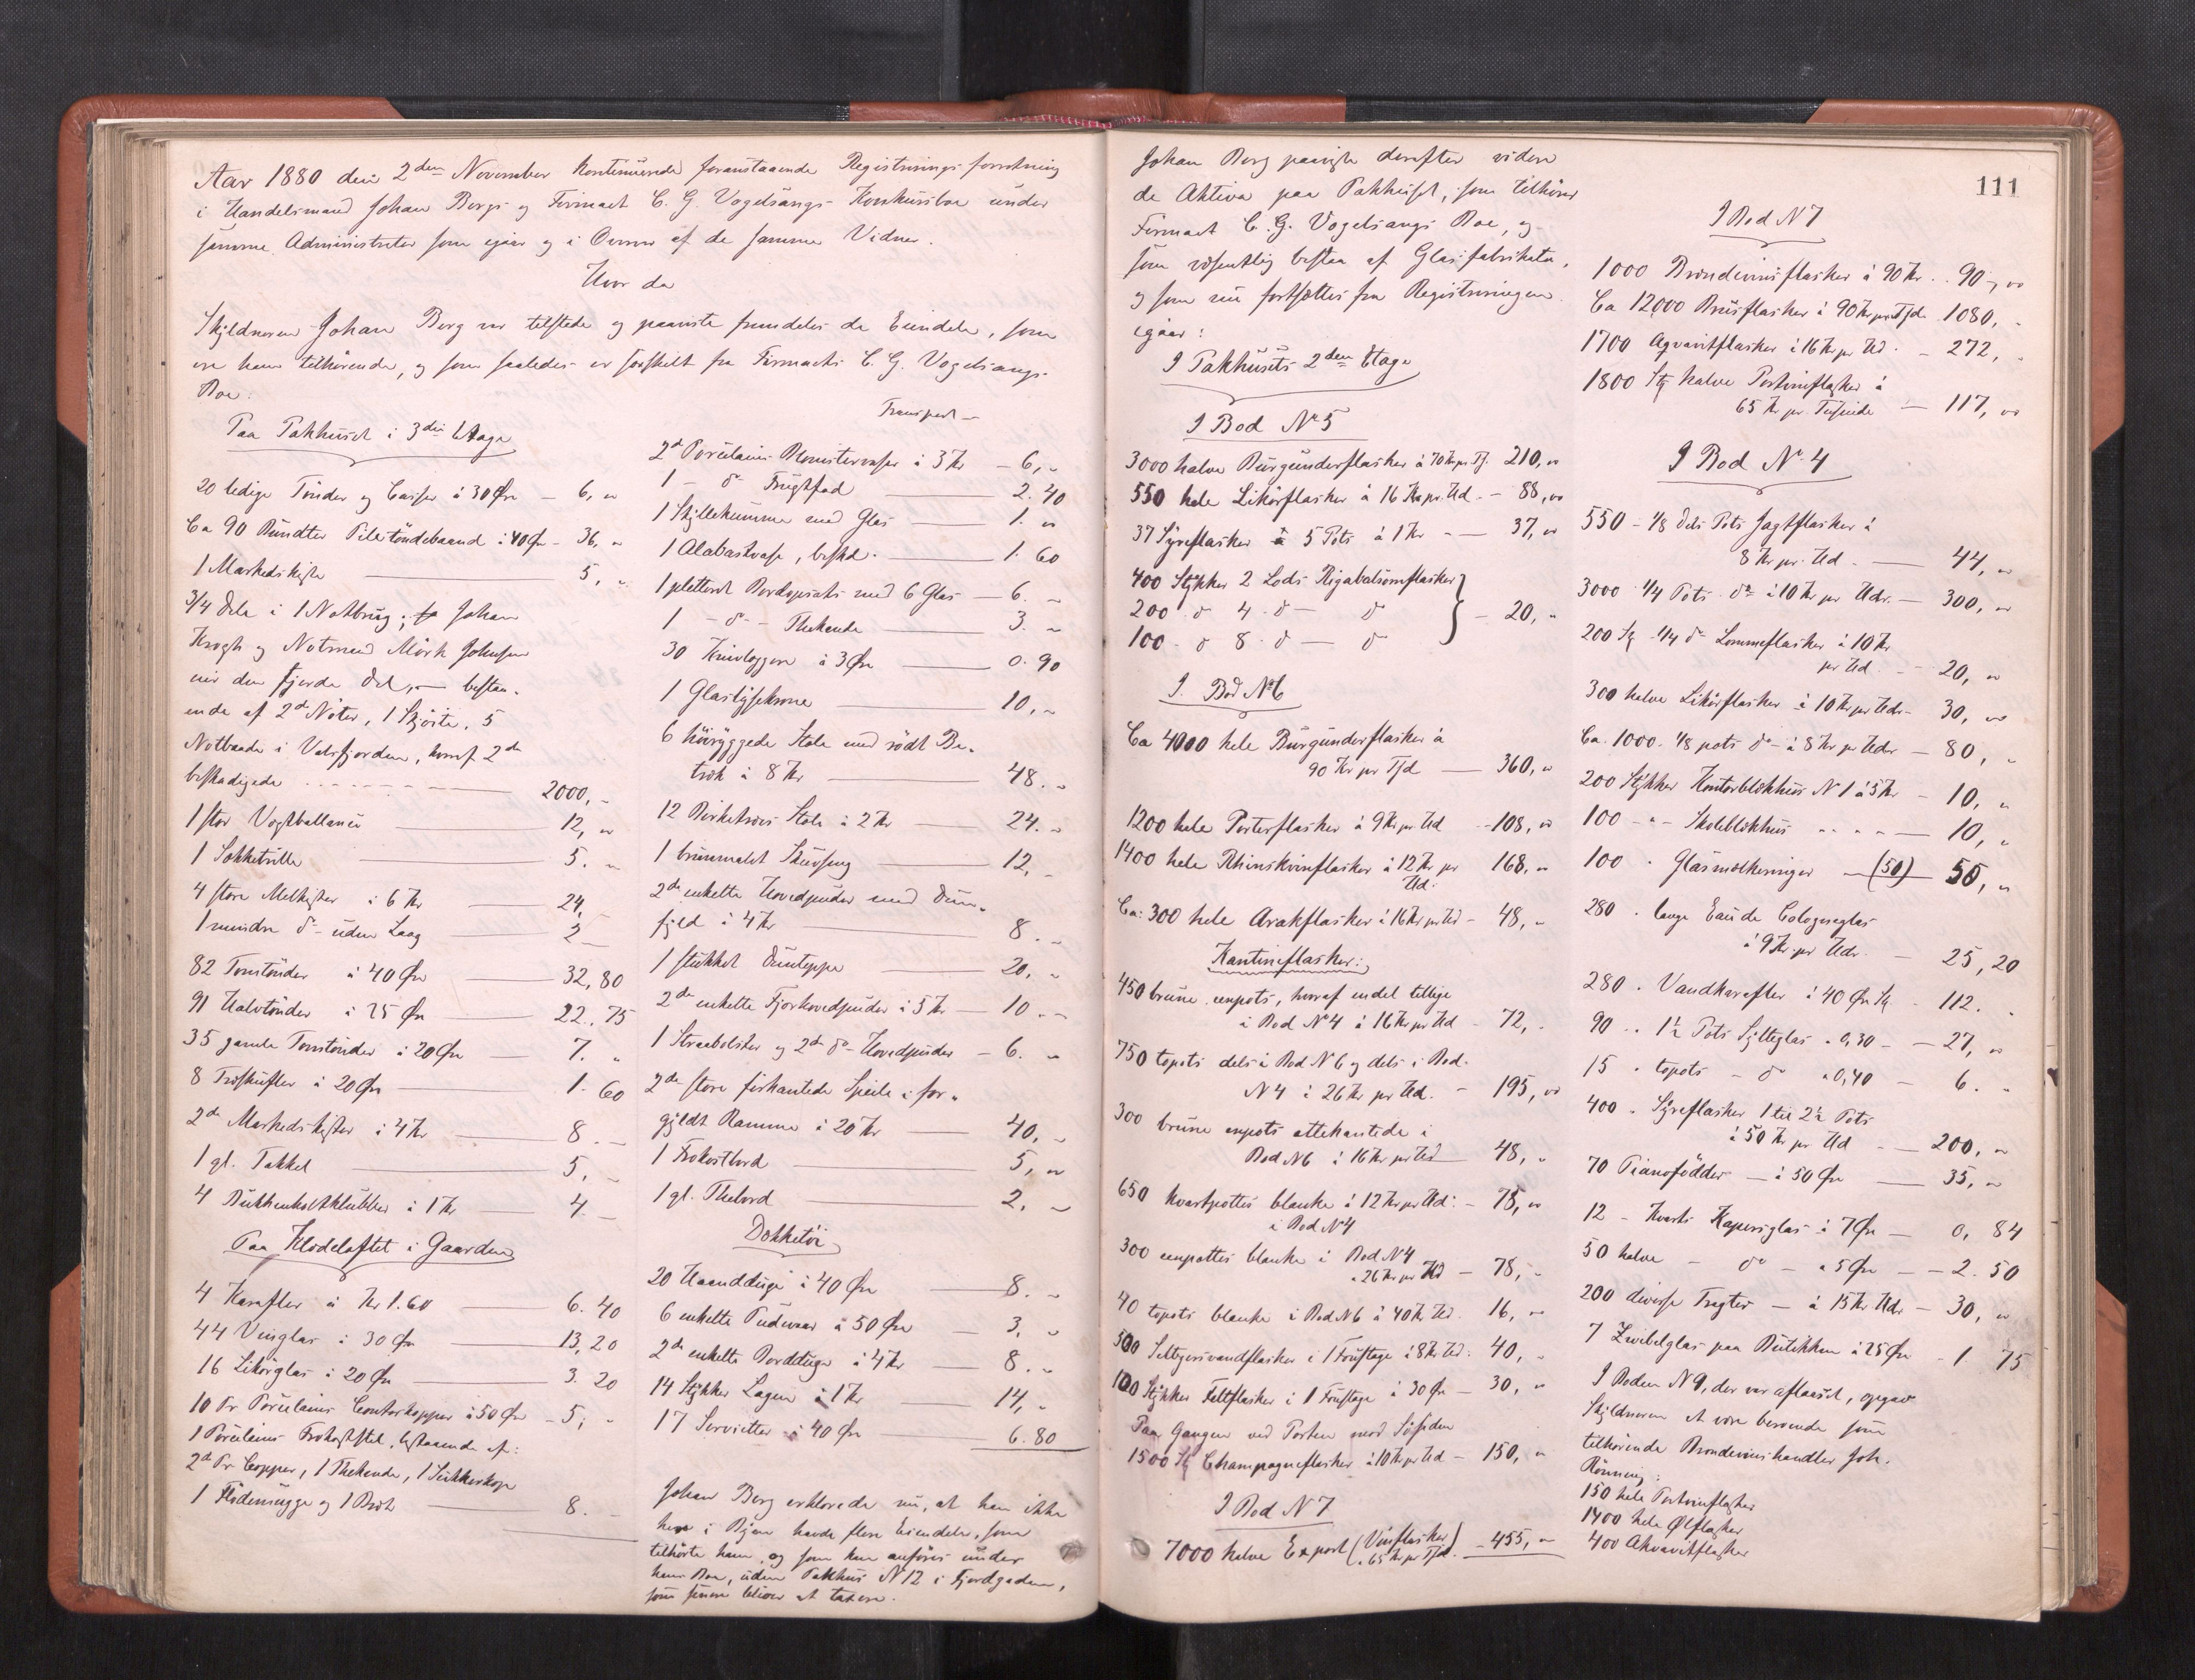 Aar 1880 den 2den November kontinuerede foranstaaende Registreringsforretning
i Handelsmand Johan Bergs og Firmaet C. G. Vogelsangs Konkursboer under
samme Administrator som igaar og i Overvær af de samme Vidner.
Hvor da
Skyldneren Johan Berg var tilstede og paaviste fremdeles de Eiendele, som
ere ham tilhørende, og som saaledes er forskelt fra Firmaets C. G. Vogelsangs
Boe:
Paa Pakhuset i 3die Etage
20 ledige Tønder og Casser à 30 Øre — 6, „
Ca 90 Bundter Piletøndebaand à 40 Øre — 36, „
1 Markedskiste — 5, „
3/4 Dele i 1 Notbrug; Johan
Krogh og Notmand Mørk Johnsen
eier den fjerde Del, — bestaa-
ende af 2de Nøter, 1 Skjøite, 5
Notbaade i Velfjorden, hvoraf 2de
beskadigede — 2000, –
1 stor Vægtballance — 12, „
1 Sækketrille — 5. „
4 store Melkister à 6 Kr — 24,
1 mindre do uden Laag — 2 –
82 Tomtønder à 40 Øre — 32,80
91 Halvtønder à 25 Øre — 22.75
35 gamle Tomtønder à 20 Øre — 7. „
8 Træskufler à 20 Øre — 1.60
2de Markedskister à 4 Kr — 8. –
1 gl. Takkel — 5, –
4 Bukkenholtklubber à 1 Kr — 4 –
Paa Klædeloftet i Gaarden
4 Karafler à Kr 1.60 — 6.40
44 Vinglas à 30 Øre — 13,20
16 Likørglas à 20 Øre — 3.20
10 Pr Porcelains Contorkopper à 50 Øre — 5, „
1 Porcelains Frokoststel, bestaaende af:
2de Pr Copper, 1 Thekande, 1 Sukkerkop
1 Flødemugge og 1 Bret — 8. –
Transport —
2de Porcelains Blomstervaser à 3 Kr — 6, „
1 – do Frugtfad — 2.40
1 Skyllekumme med Glas — 1. „
1 Alabastvase, beskd. — 1.60
1 pletteret Bordopsats med 6 Glas — 6. –
1 – do – Thekande — 3. „
30 Knivleggere à 3 Øre — 0.90
1 Glaslysekrone — 10, „
6 høiryggede Stole med rødt Be-
træk à 8 Kr — 48. „
12 Birketræs Stole à 2 Kr — 24. „
1 brunmalet Skuvseng — 12, –
2de enkelte Hovedpuder med Dun-
fyld à 4 Kr — 8. –
1 stukket Dunteppe — 20, „
2de enkelte Fjærhovedpuder à 5 Kr — 10. –
1 Straabolster og 2de do Hovedpuder — 6. „
2de store firkantede Speile i for-
gyldt Ramme à 20 Kr — 40, „
1 Frokostbord — 5, „
1 gl. Thebord — 2, „
Dækketøi
20 Haandduge à 40 Øre — 8. „
6 enkelte Pudevaar à 50 Øre — 3, „
2de enkelte Bordduge à 4 Kr — 8. „
14 Stykker Lagen à 1 Kr — 14, „
17 Servietter à 40 Øre — 6.80
Johan Berg erklærede nu, at han ikke
her i Byen havde flere Eiendele, som
tilhørte ham, og som kan anføres under
hans Boe, uden Pakhus N 12 i Fjordgaden,
som senere bliver at taxere.
111
Johan Berg paaviste derefter videre
de Aktiva paa Pakhuset, som tilhører
Firmaet C. G. Vogelsangs Boe, og
som væsentlig bestaa af Glasfabrikata,
og som nu fortsættes fra Registreringen
igaar:
I Pakhusets 2den Etage
I Bod No 5
3000 halve Burgunderflasker à 70 Kr pr Tsd. 210, „
550 hele Likørflasker à 16 Kr pr. Hd. – 88, „
37 Syreflasker à 5 Pots à 1 Kr — 37, „
400 Stykker 2 Lods Rigabalsomflasker
200 do 4 do — do } – 20, „
100 do 8 do — do
I Bod No 6
Ca 4000 hele Burgunderflasker à
90 Kr pr Tsd — 360, „
1200 hele Porterflasker à 9 Kr pr Hd – 108, „
1400 hele Rhinskvinflasker à 12 Kr pr 168, „
Hd.
Ca: 300 hele Arakflasker à 16 Kr pr Hd – 48, „
Kantineflasker:
450 brune eenpots, hvoraf endel tillige
i Bod No 4 à 16 Kr pr Hd – 72, „
750 topots dels i Bod N 6 og dels i Bod
N 4 à 26 Kr pr Hd. – 195, „
300 brune enpots ottekantede i
Bod N 6 à 16 Kr pr Hd 48, „
650 kvartpottes blanke à 12 Kr pr Hd: – 78, „
i Bod N 4
300 eenpottes blanke i Bod N 4
à 26 Kr pr Hd – 78, „
40 topots blanke i Bod N 6 à 40 Kr Hd. 16, „
500 Seltersvandflasker i 1 Fustage à 8 Kr Hd. 40, „
100 Stykker Feltflasker i 1 Fustage à 30 Øre – 30, „
Paa Gangen ved Porten mod Søsiden
1500 St Champagneflasker à 10 Kr pr Hd – 150, „
I Bod N 7
7000 halve Export (Vinflasker) – 455, „
à 65 Kr pr Tsd.
I Bod N 7
1000 Brændevinsflasker à 90 Kr . . 90, „
Ca 12000 Brusflasker à 90 Kr pr Tsd. 1080, „
1700 Aqvavitflasker à 16 Kr pr Hd. – 272, „
1800 Stk halve Portvinflasker à
65 Kr pr. Tusinde — 117, „
I Bod No 4
550 – 1/8 Dels Pots Jagtflasker à
8 Kr pr. Hd. — 44, „
3000 1/4 Pots do à 10 Kr pr Hdr. — 300, „
200 St 1/4 do Lommeflasker à 10 Kr
pr Hd. — 20, „
300 halve Likørflasker à 10 Kr pr Hdr – 30, „
Ca. 1000. 1/8 pots do à 8 Kr pr Hdr – 80, „
200 Stykker Kontorblækhus N 1 à 5 Kr – 10, „
100 – „ – Skoleblækhus „ „ „ — 10, „
100 „ Glasmælkeringer – (50) – 50, „
280 „ lange Eau de Cologneglas
à 9 Kr pr Hdr. — 25,20
280 „ Vandkarafler à 40 Øre St – 112. „
90 „ 1 1/2 Pots Sylteglas à 0,30 – – 27, „
15 „ topots – do „ 0,40 — 6. „
400 „ Syreflasker 1 til 2 1/2 Pots
à 50 Kr pr Hd – – 200, „
70 Pianofødder — à 50 Øre — 35, „
12 – Kvarts Kapersglas à 7 Øre — 0,84
50 halve – do – à 5 Øre – – 2.50
200 diverse Tragter — à 15 Kr Hdr – 30, „
7 Zwibelglas paa Butikken à 25 Øre – 1 75
I Boden N 9, der var aflaaset, opgav
Skyldneren at være beroende som
tilhørende Brændevinshandler Joh.
Rønning:
150 hele Portvinflasker
1400 hele Ølflasker
400 Akvavitflasker